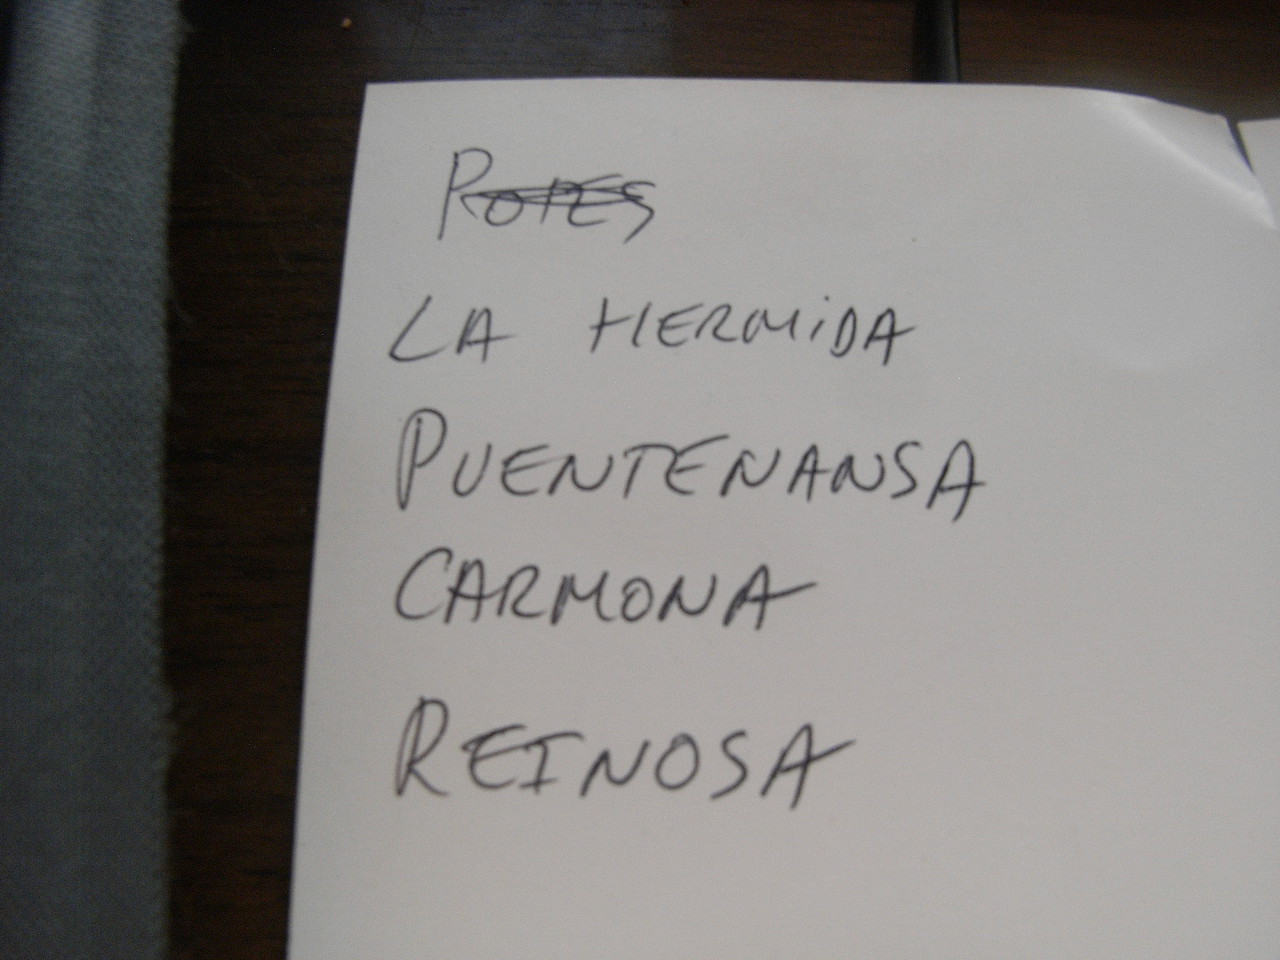 POTES
LA HERMIDA
PUENTENANSA
CARMONA
REINOSA